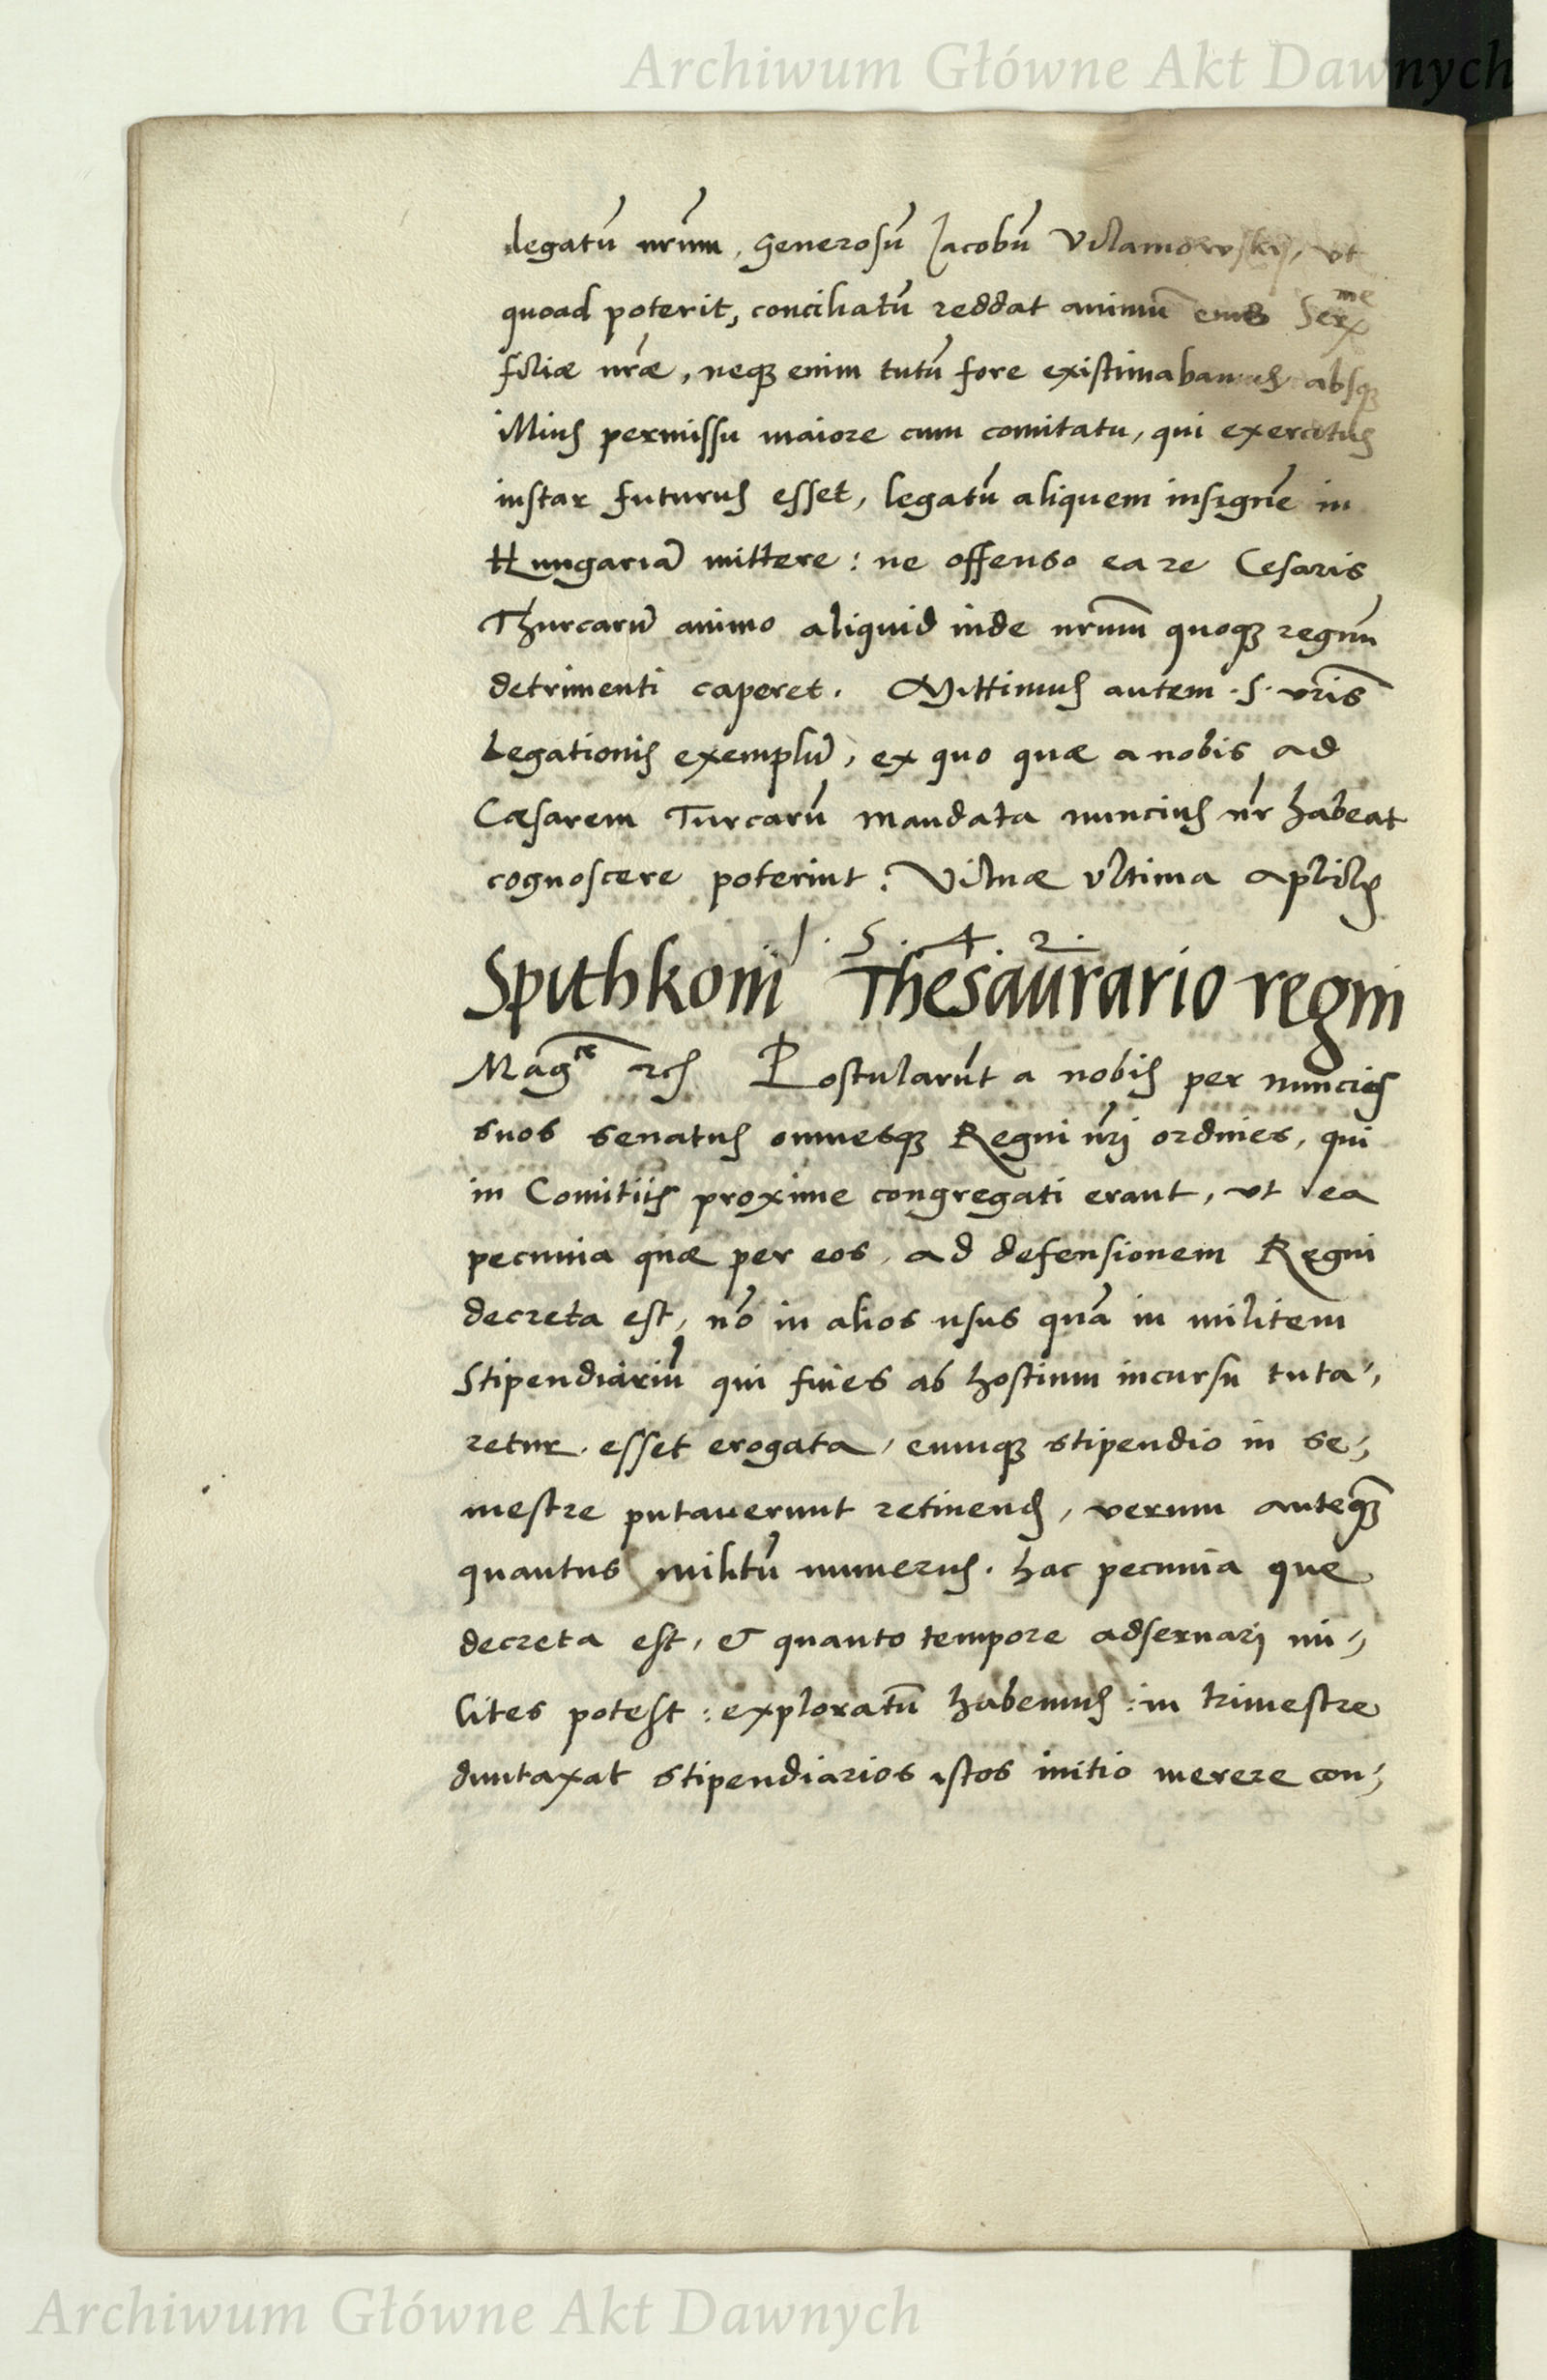 Archiwum Główne Akt Dawnych
legatū nrūm, Generosū Jacobū Vilamowsky, vt
quoad poterit, conciliatū reddat animū eius Serme
filiæ nræ, neqȝ enim tutū fore existimabamus absqȝ
illius permissu maiore cum comitatu, qui exercitus
instar futurus esset, legatū aliquem insignē in
Hungariā mittere: ne offenso ea re Cesaris
Thurcarū animo aliquid inde nrūm quoqȝ regnū
detrimenti caperet. Mittimus autem .S. vrīs
Legationis exemplū, ex quo quæ a nobis ad
Cæsarem Turcarū mandata nuncius nr̄ habeat
cognoscere poterint. Vilnæ vltima Aprilis
1.5.4.2.
Spithkoni Thesaurario regni
Magce rcs Postularūt a nobis per nuncios
suos senatus omnesqȝ Regni nrj ordines, qui
in Comitiis proxime congregati erant, vt ea
pecunia quæ per eos, ad defensionem Regni
decreta est, nō in alios usus quā in militem
Stipendiariū qui fines ab hostium incursu tuta-,
retur esset erogata, eumqȝ stipendio in se-,
mestre putauerunt retinend, verum anteqȝ
quantus militū numerus. hac pecunia que
decreta est, & quanto tempore adseruarj mi-,
lites potest: exploratū habemus: in trimestre
duntaxat stipendiarios istos initio merere con-,
Archiwum Główne Akt Dawnych